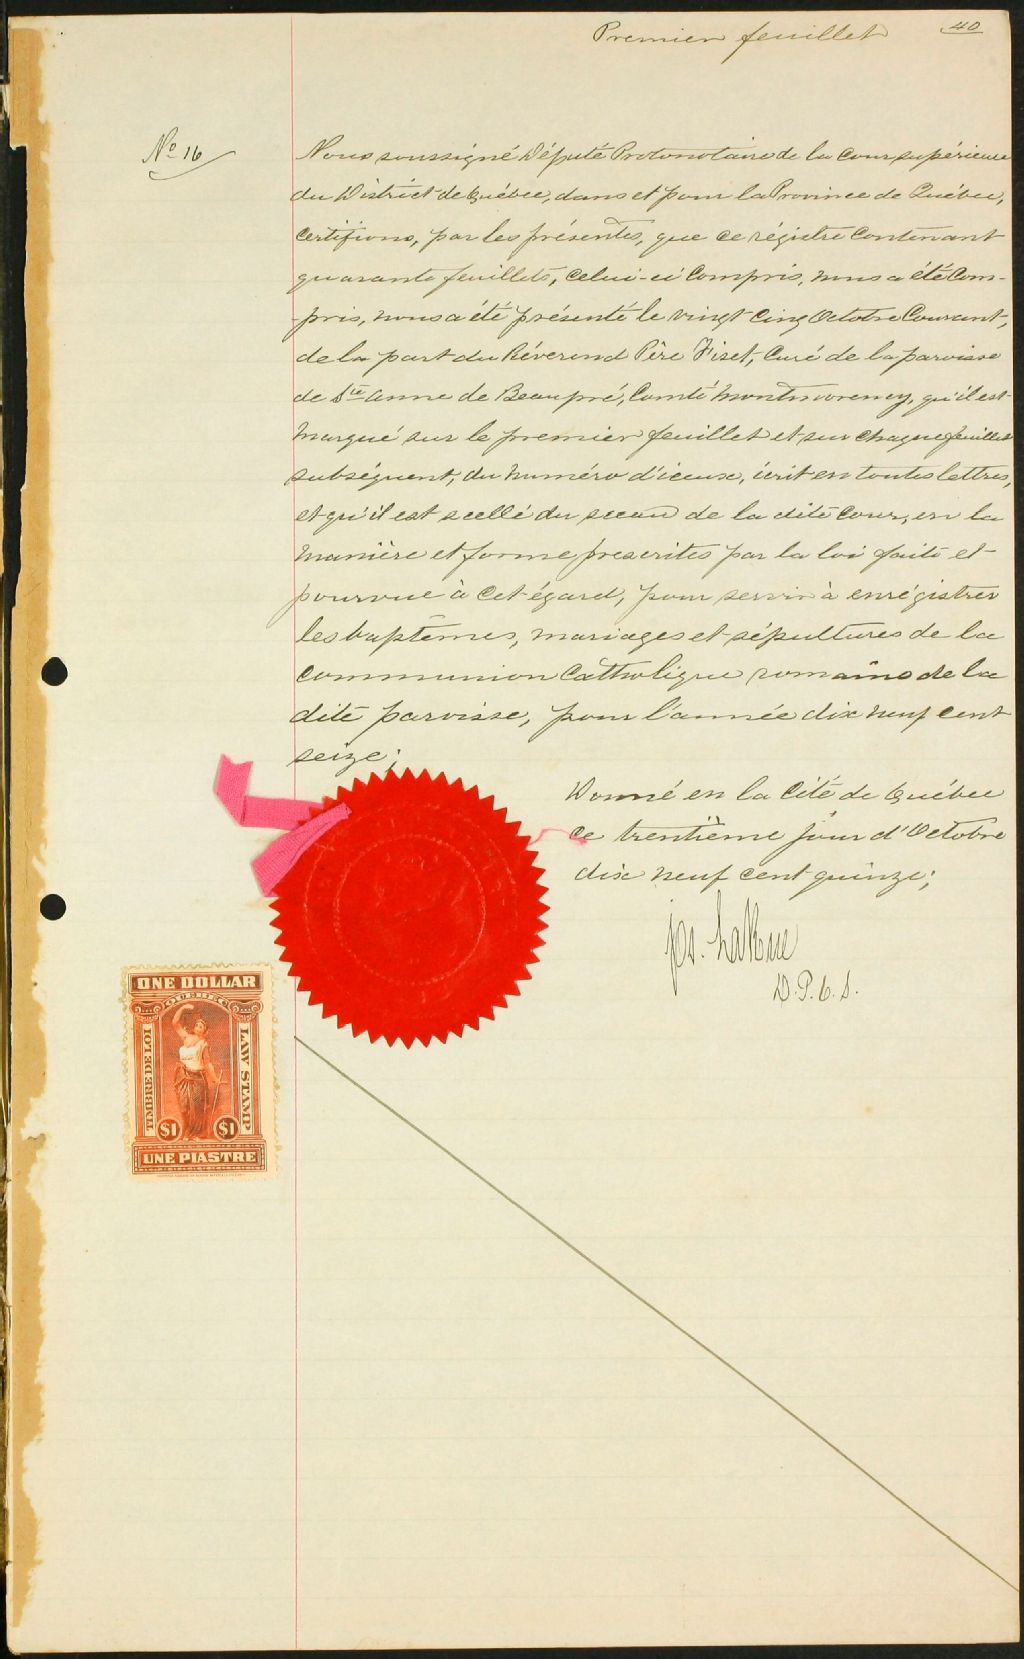 Premier feuillet
40
No 16
Nous soussigné Député Protonotaire de la Cour supérieure
du District de Québec, dans et pour la Province de Québec,
Certifions, par les présentes, que ce régistre Contenant
quarante feuillets, Celui-ci Compris, nous a été Com-
-pris, nous a été présenté le vingt Cinq Octobre Courant,
de la part du Réverend Père Fiset, Curé de la paroisse
de Ste Anne de Beaupré, Comté Montmorency, qu'il est
Marqué sur le premier feuillet et sur Chaque feuillet
subséquent, du Numéro d'iceux, écrit en toutes lettres,
et qu'il est scellé du sceau de la dite Cour, en la
Manière et forme prescrites par la loi faite et
pourvue à Cet égard, pour servir à enrégistrer
les baptêmes, mariages et sépultures de la
Communion Catholique romaine de la
dite paroisse, pour l'année dix neuf cent
seize;
Donné en la Cité de Québec
Ce trentième jour d'Octobre
dix neuf cent quinze;
Jos. LaRue
D.P.C.S.
ONE DOLLAR
QUEBEC
TIMBRE DE LOI
LAW STAMP
$1 $1
UNE PIASTRE